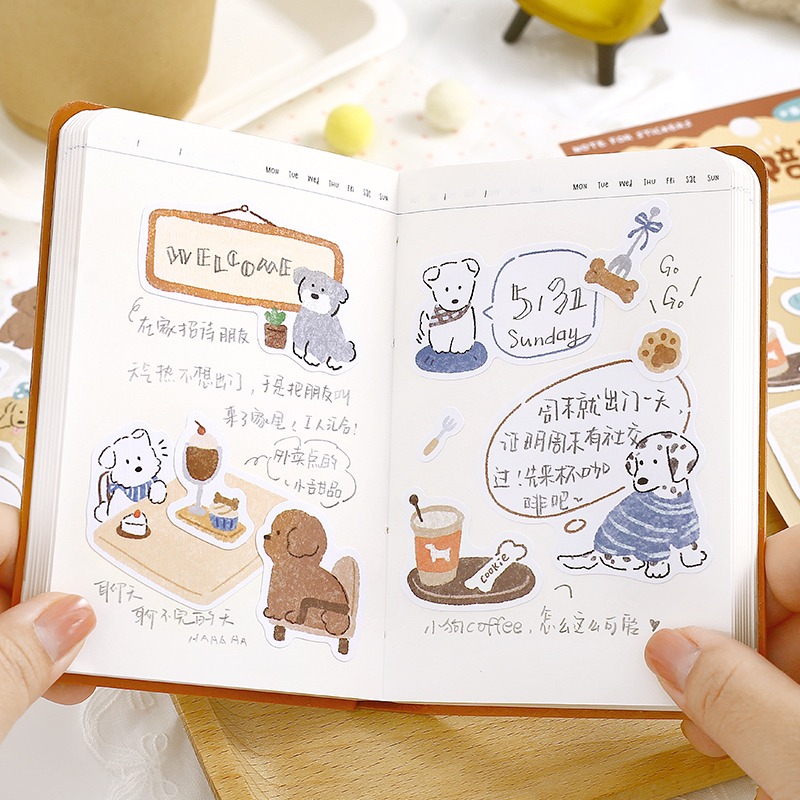 MON TUE WED THU FRI SAT SUN
WELCOME
在家招待朋友
天气热不想出门，于是把朋友叫
来了家里，I人汇合！
外卖点的
小甜品
聊天
聊不完的天
HAHAHA
MON TUE WED THU FRI SAT SUN
Sunday
GO
GO!
周末就出门一天，
证明周末有社交
过！先来杯咖
啡吧~
cookie
小狗coffee，怎么这么可爱
NOTE FOR STICKERS